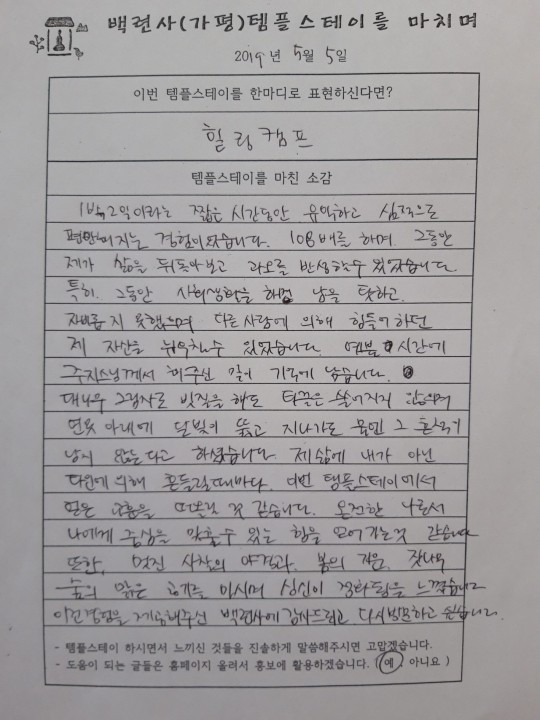 백련사(가평)템플스테이를 마치며
2019년 5월 5일
이번 템플스테이를 한마디로 표현하신다면?
힐링캠프
템플스테이를 마친 소감
1박2일이라는 짧은 시간동안 유익하고 심적으로
편안해지는 경험이었습니다. 108배를 하며 그동안
제가 삶을 뒤돌아보고 과오를 반성할수 있었습니다.
특히 그동안 사회생활을 하며 남을 탓하고
자비롭지 못했으며 다른 사람에 의해 힘들어 하던
제 자신을 뉘우칠수 있었습니다. 염불 시간에
주지스님께서 해주신 말이 기억에 남습니다.
대나무 그림자로 빗질을 해도 티끌은 쓸어지지 않으며
연못 아래에 달빛이 뚫고 지나가도 물엔 그 흔적이
남지 않는다고 하셨습니다. 제 삶에 내가 아닌
타인에 의해 흔들릴때마다. 이번 템플스테이에서
얻은 교훈을 떠올릴 것 같습니다. 온전한 나로서
나에게 중심을 맞출수 있는 힘을 얻어가는것 같습니다
또한, 멋진 사찰의 야경과, 봄의 자음, 잣나무
숲의 맑은 공기를 마시며 심신이 정화됨을 느꼈습니다
이런경험을 제공해주신 백련사에 감사드리고 다시방문하고 싶습니다.
- 템플스테이 하시면서 느끼신 것들을 진솔하게 말씀해주시면 고맙겠습니다.
- 도움이 되는 글들은 홈페이지 올려서 홍보에 활용하겠습니다. ( 예 아니요 )